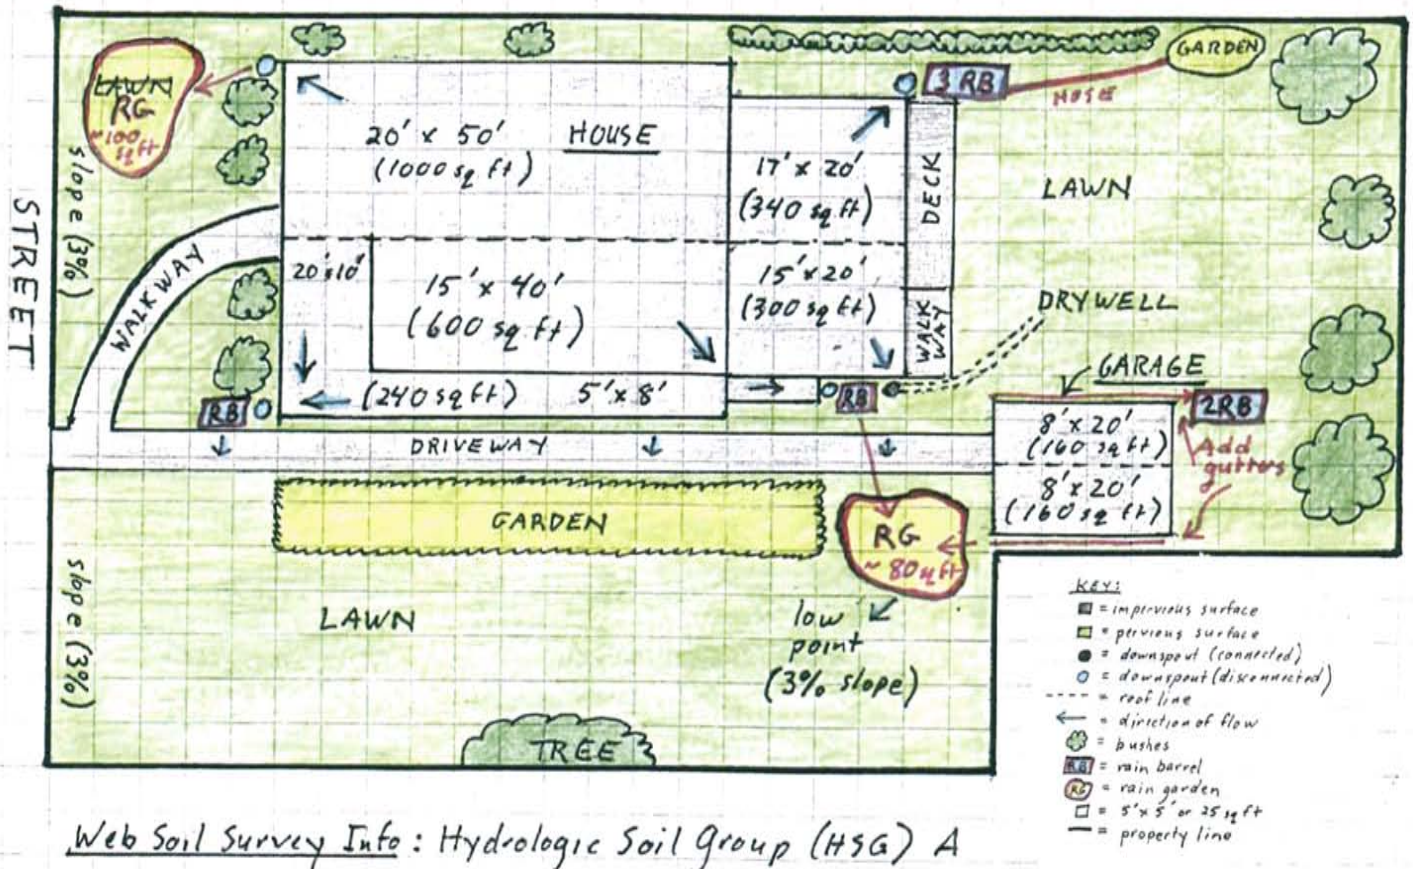 STREET
slope (3%)
LAWN
RG
~100
sq ft
WALKWAY
20' x 50'
(1000 sq ft)
HOUSE
20' x 10'
15' x 40'
(600 sq ft)
(240 sq ft)
5' x 8'
17' x 20'
(340 sq ft)
15' x 20'
(300 sq ft)
DECK
WALK
WAY
3 RB
HOSE
GARDEN
LAWN
DRYWELL
GARAGE
8' x 20'
(160 sq ft)
8' x 20'
(160 sq ft)
2RB
Add
gutters
RB
RB
DRIVEWAY
GARDEN
RG
~ 80 sq ft
low
point
(3% slope)
slope (3%)
LAWN
TREE
KEY:
= impervious surface
= pervious surface
= downspout (connected)
= downspout (disconnected)
= roof line
= direction of flow
= bushes
RB = rain barrel
RG = rain garden
= 5' x 5' or 25 sq ft
= property line
Web Soil Survey Info: Hydrologic Soil Group (HSG) A